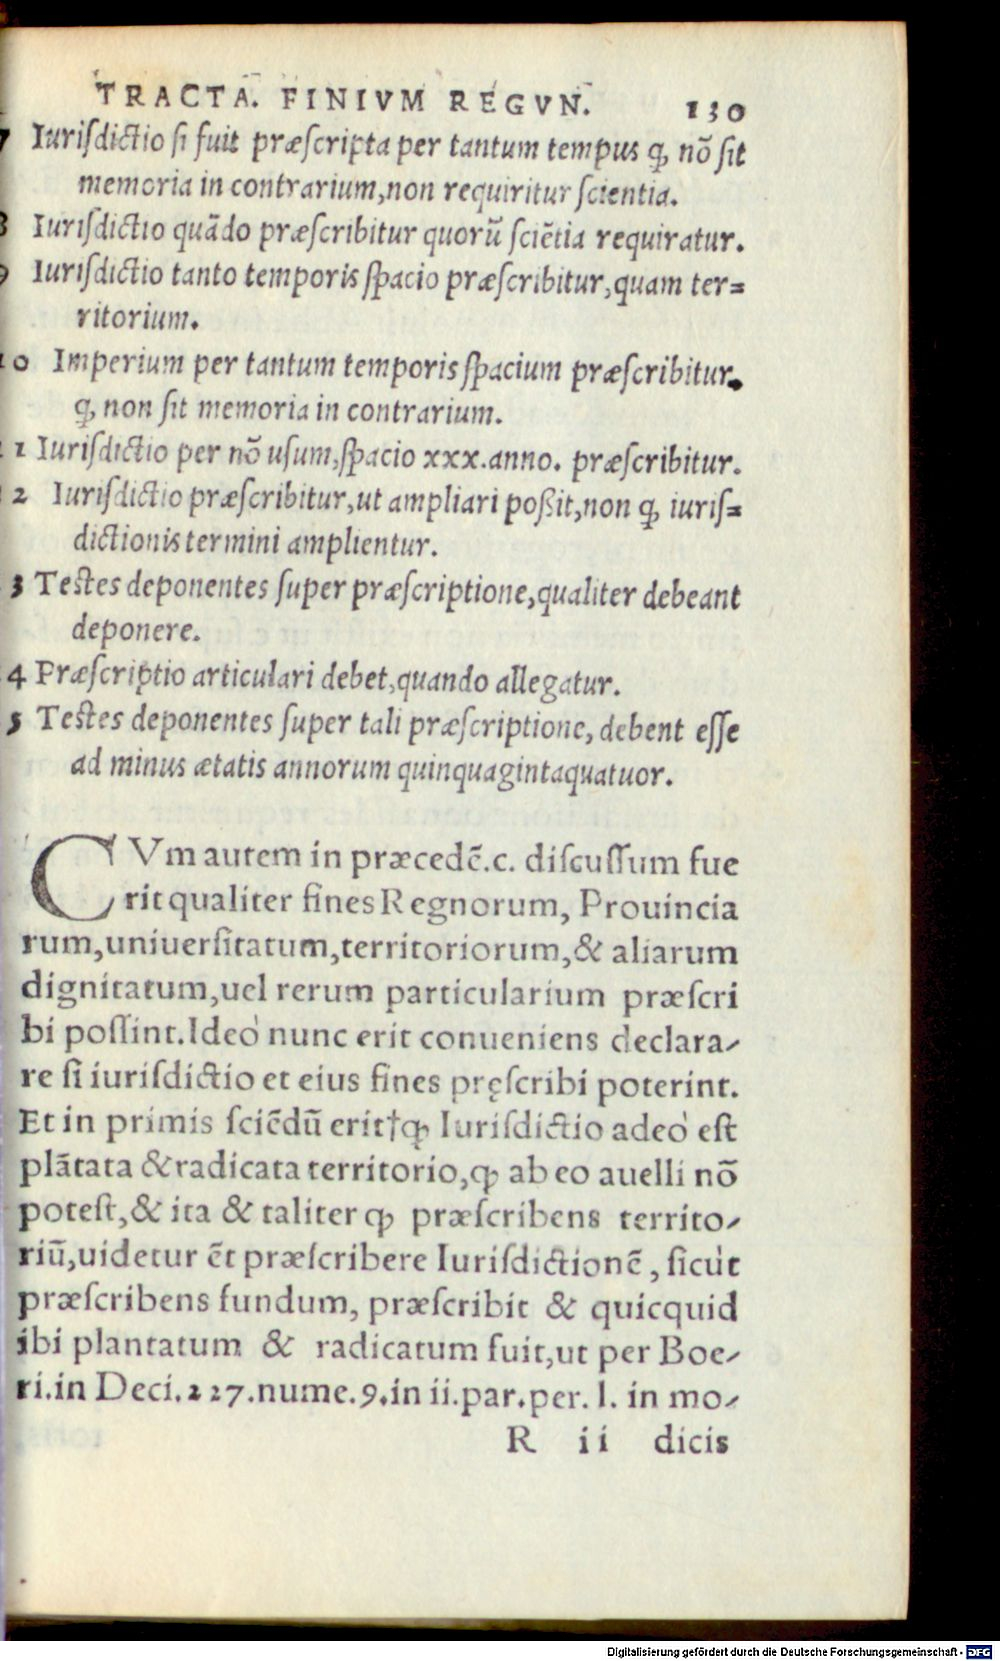 TRACTA. FINIVM REGVN. 130
7 Iuriſdictio ſi fuit præſcripta per tantum tempus ꝙ nō ſit
memoria in contrarium,non requiritur ſcientia.
8 Iuriſdictio quādo præſcribitur quorū ſciētia requiratur.
9 Iuriſdictio tanto temporis ſpacio præſcribitur,quam ter=
ritorium.
10 Imperium per tantum temporis ſpacium præſcribitur.
ꝙ non ſit memoria in contrarium.
11 Iuriſdictio per nō uſum,ſpacio xxx.anno. præſcribitur.
12 Iuriſdictio præſcribitur,ut ampliari poßit,non ꝙ iuriſ=
dictionis termini amplientur.
3 Teſtes deponentes ſuper præſcriptione,qualiter debeant
deponere.
4 Præſcriptio articulari debet,quando allegatur.
5 Teſtes deponentes ſuper tali præſcriptione, debent eſſe
ad minus ætatis annorum quinquagintaquatuor.
CVm autem in præcedē.c. diſcuſſum fue
rit qualiter fines Regnorum, Prouincia
rum,uniuerſitatum,territoriorum,& aliarum
dignitatum,uel rerum particularium præſcri
bi poſſint.Ideò nunc erit conueniens declara-
re ſi iuriſdictio et eius fines pręſcribi poterint.
Et in primis ſciēdū erit†ꝙ Iuriſdictio adeò eſt
plātata & radicata territorio,ꝙ ab eo auelli nō
poteſt,& ita & taliter ꝙ præſcribens territo-
riū,uidetur ēt præſcribere Iuriſdictionē, ſicùt
præſcribens fundum, præſcribit & quicquid
ibi plantatum & radicatum fuit,ut per Boe-
ri.in Deci.227.nume.9.in ii.par.per. l. in mo-
R ii dicis
Digitalisierung gefördert durch die Deutsche Forschungsgemeinschaft - DFG